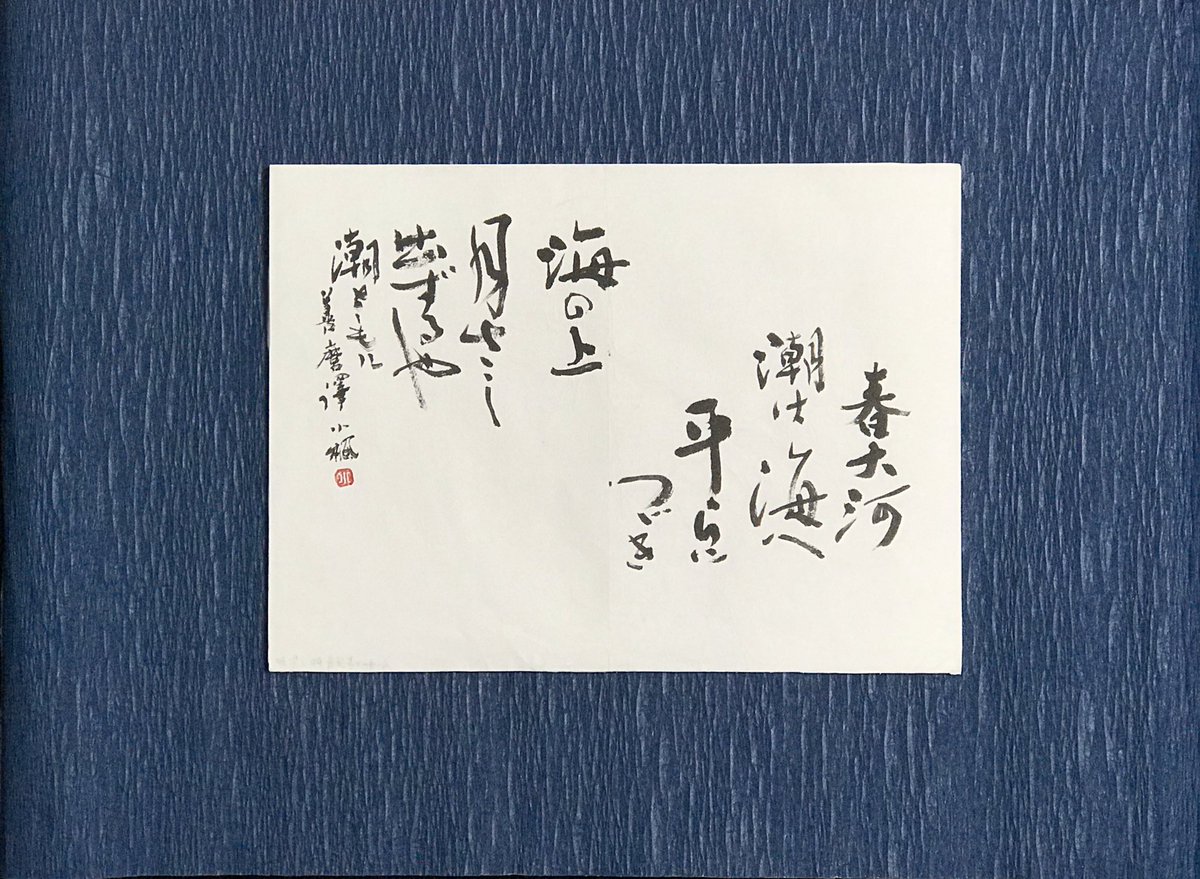 春大河
潮は海へ
平らに
つづき
海の上
月さし
出ずるや
潮とゝもに
善麿譯 小